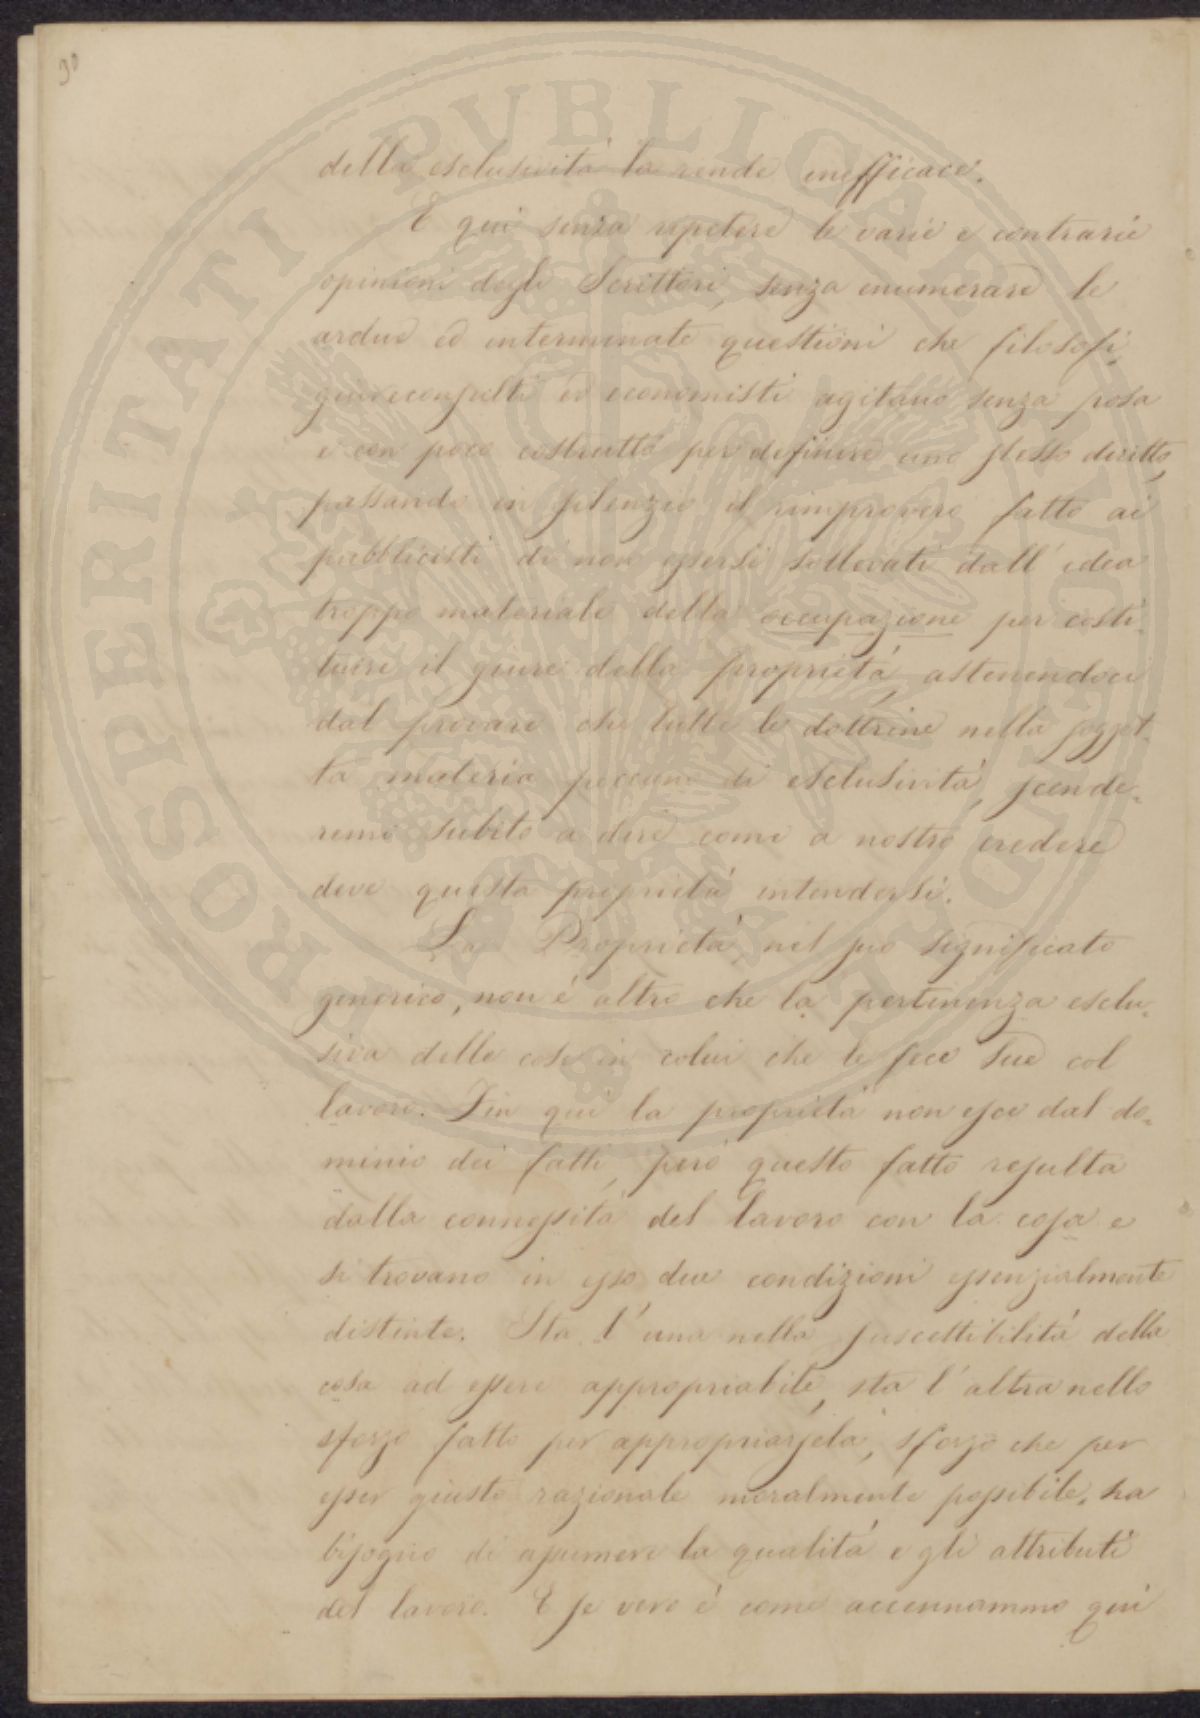 30
della esclusività la rende inefficace.
E qui senza repetere le varie e contrarie
opinioni degli Scrittori, senza enumerare le
ardue ed interminate questioni che filosofi,
giureconsulti ed economisti agitano senza posa
e con poco costrutto per definire uno stesso diritto,
passando in silenzio il rimprovero fatto ai
pubblicisti di non essersi sollevati dall'idea
troppo materiale della occupazione per costi-
tuire il giure della proprietà, astenendoci
dal provare che tutte le dottrine nella sogget-
ta materia peccano di esclusività, scende-
remo subito a dire come a nostro credere
deve questa proprietà intendersi.
La Proprietà, nel suo significato
generico, non è altro che la pertinenza esclu-
siva delle cose in colui che le fece sue col
lavoro. Fin qui la proprietà non esce dal do-
minio dei fatti, però questo fatto resulta
dalla connessità del lavoro con la cosa e
si trovano in esso due condizioni essenzialmente
distinte. Sta l'una nella suscettibilità della
cosa ad essere appropriabile, sta l'altra nello
sforzo fatto per appropriarsela, sforzo che per
esser giusto razionale moralmente possibile, ha
bisogno di assumere la qualità e gli attributi
del lavoro. E se vero è come accennammo qui
PROSPERITATI PVBLICAE